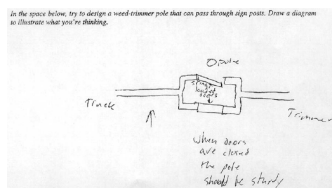 In the space below, try to design a weed-trimmer pole that can pass through sign posts. Draw a diagram
to illustrate what you're thinking.
spring
loaded
doors
Truck
Trimmer
when doors
are closed
the pole
should be sturdy